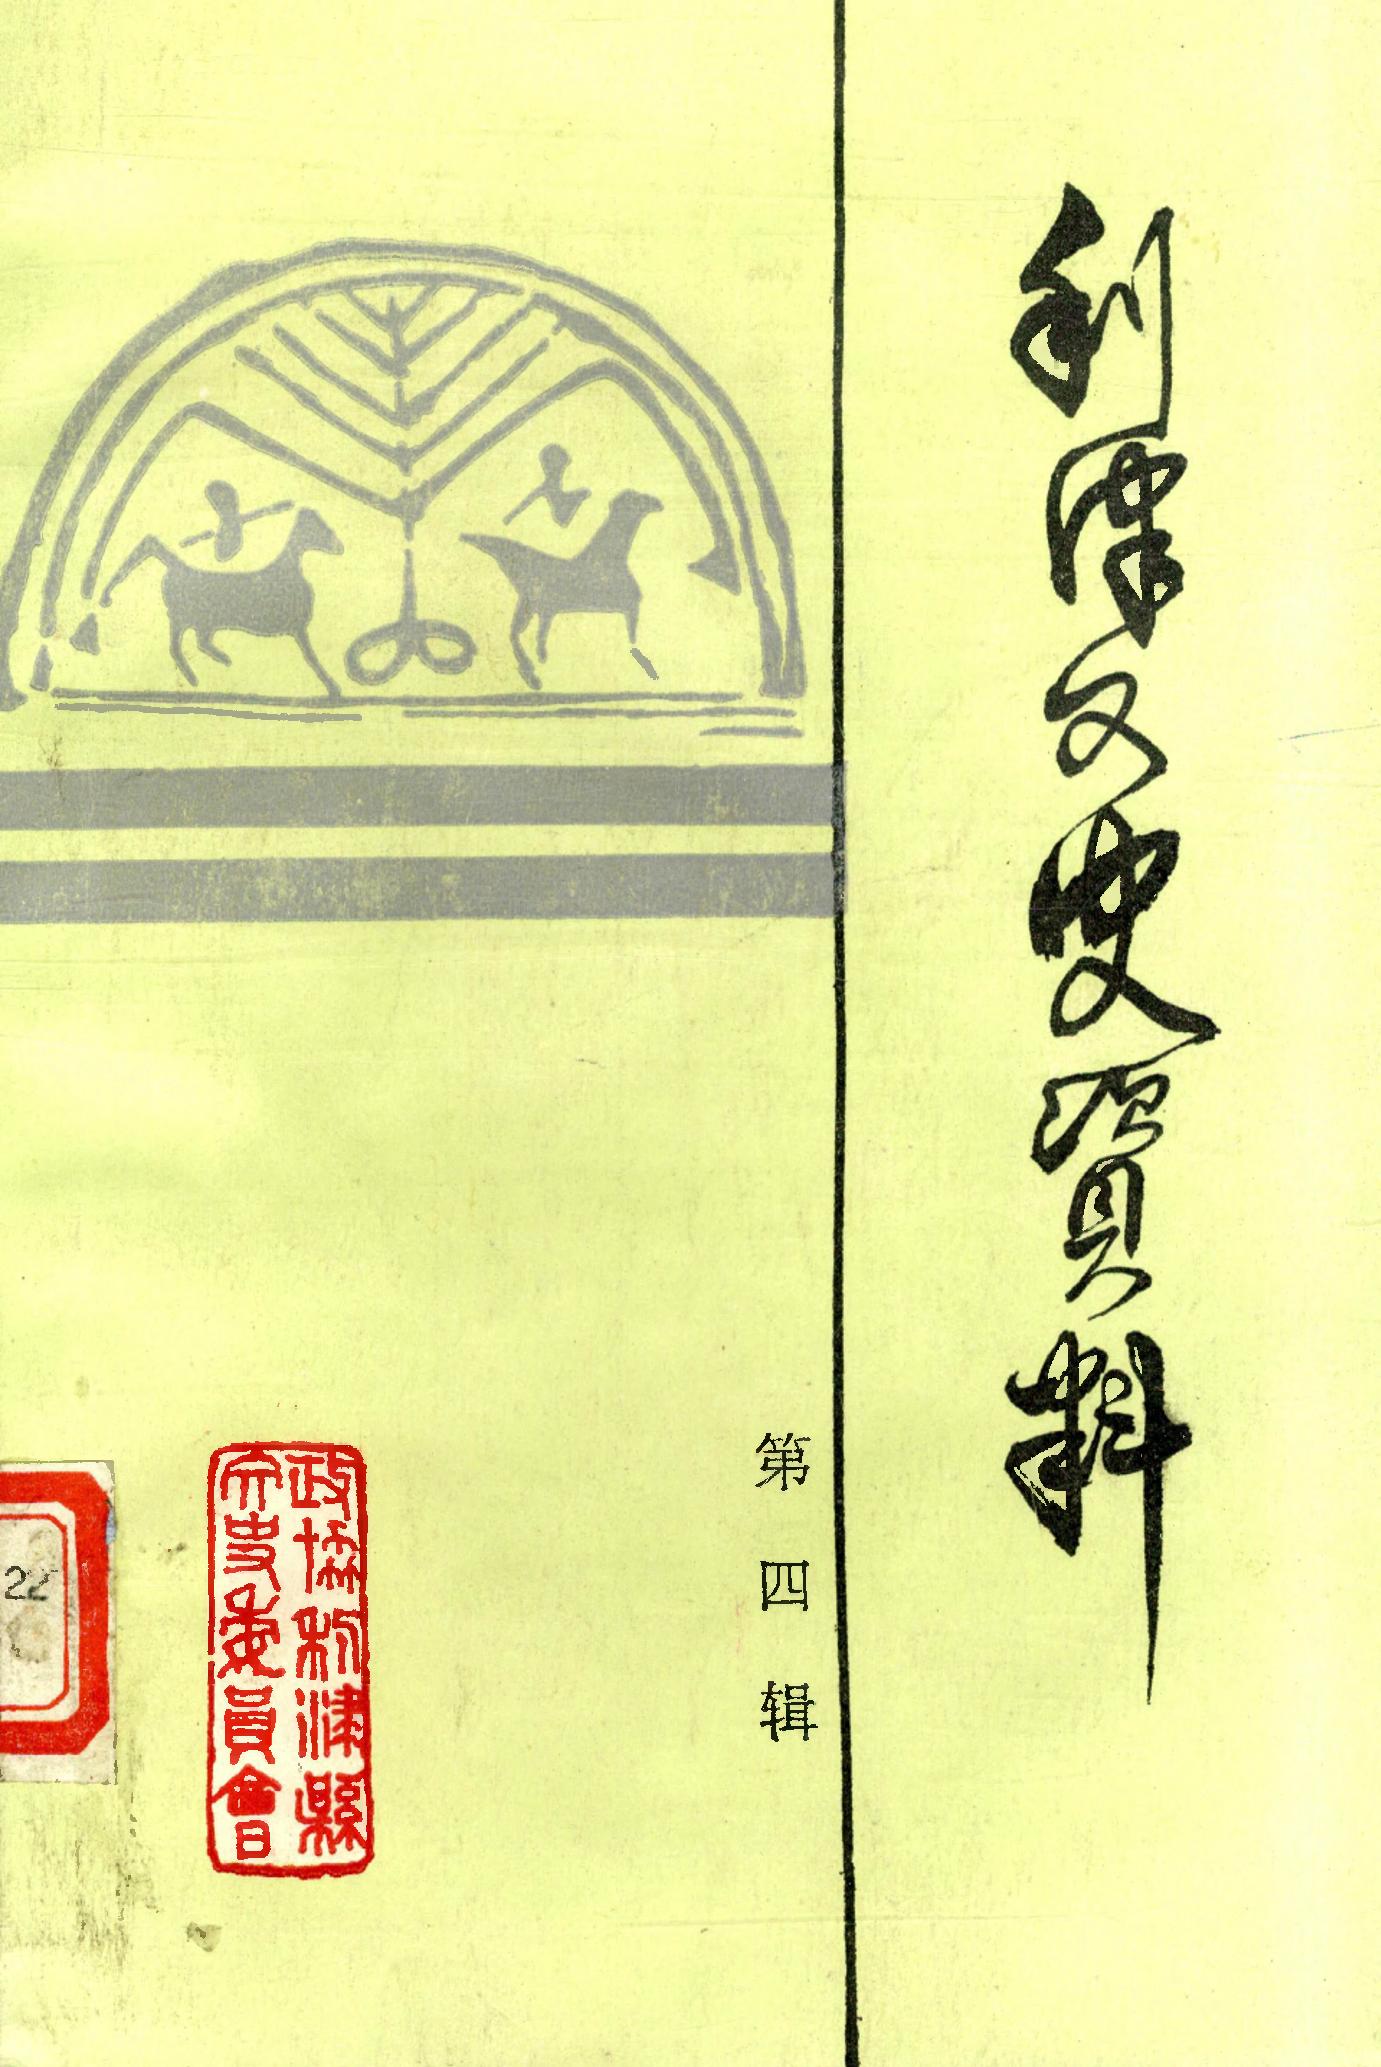 利津文史資料
第四辑
政協利津縣
文史委員會
22